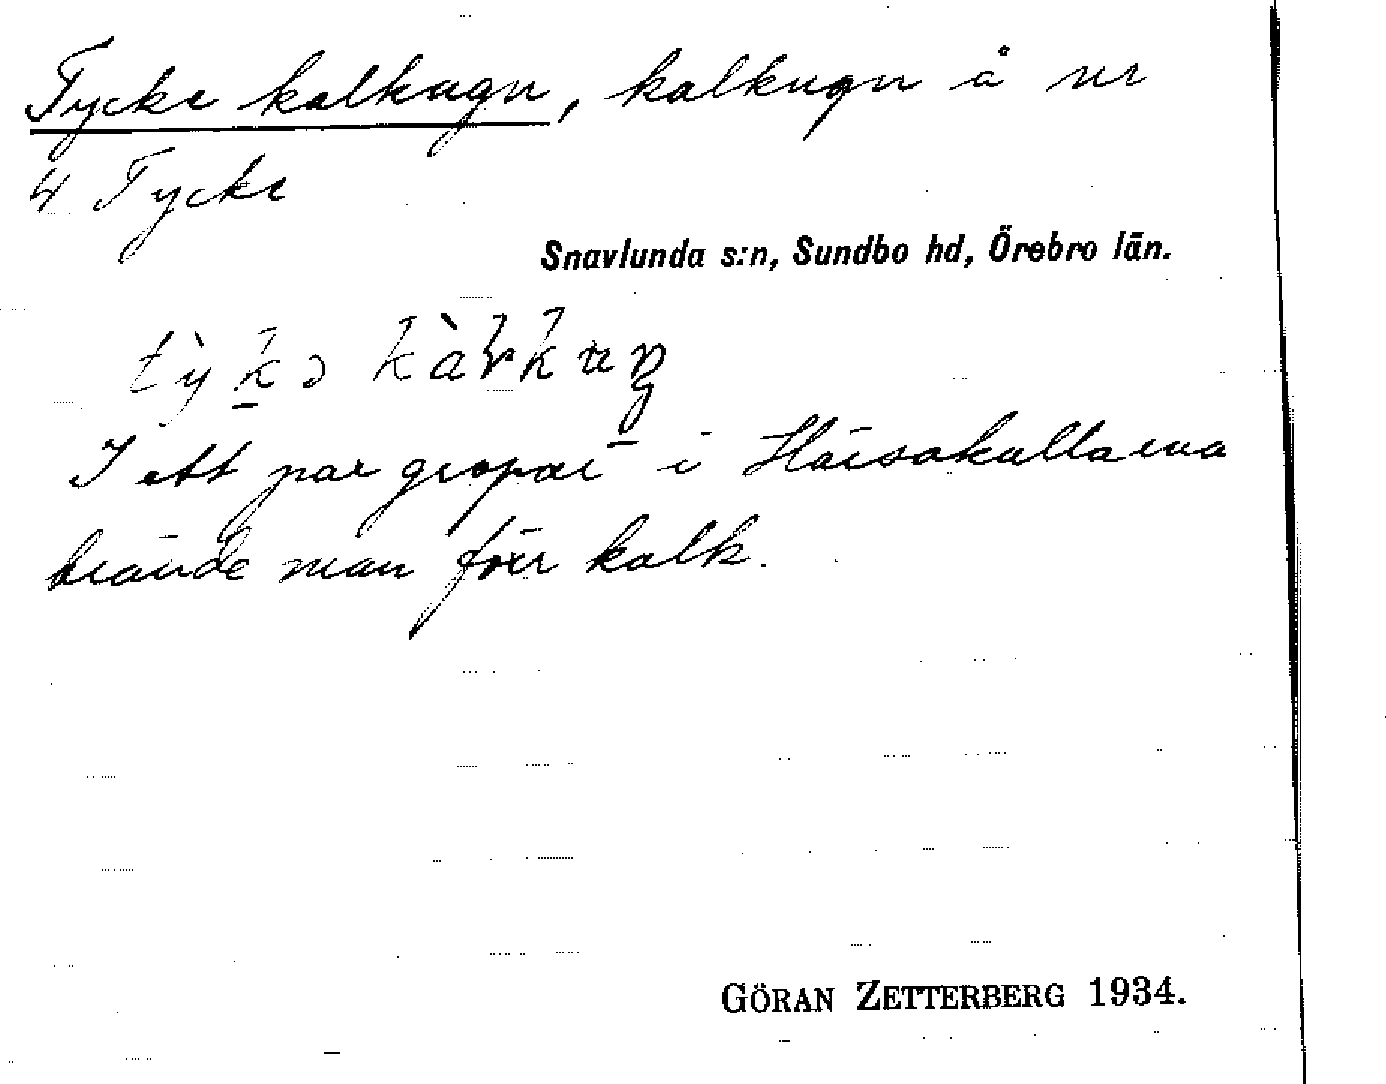 Tycke kalkugn, kalkugn å nr
4 Tycke
Snavlunda s:n, Sundbo hd, Örebro län.
I ett par gropar i Hårsakullarna
brände man förr kalk.
GÖRAN ZETTERBERG 1934.